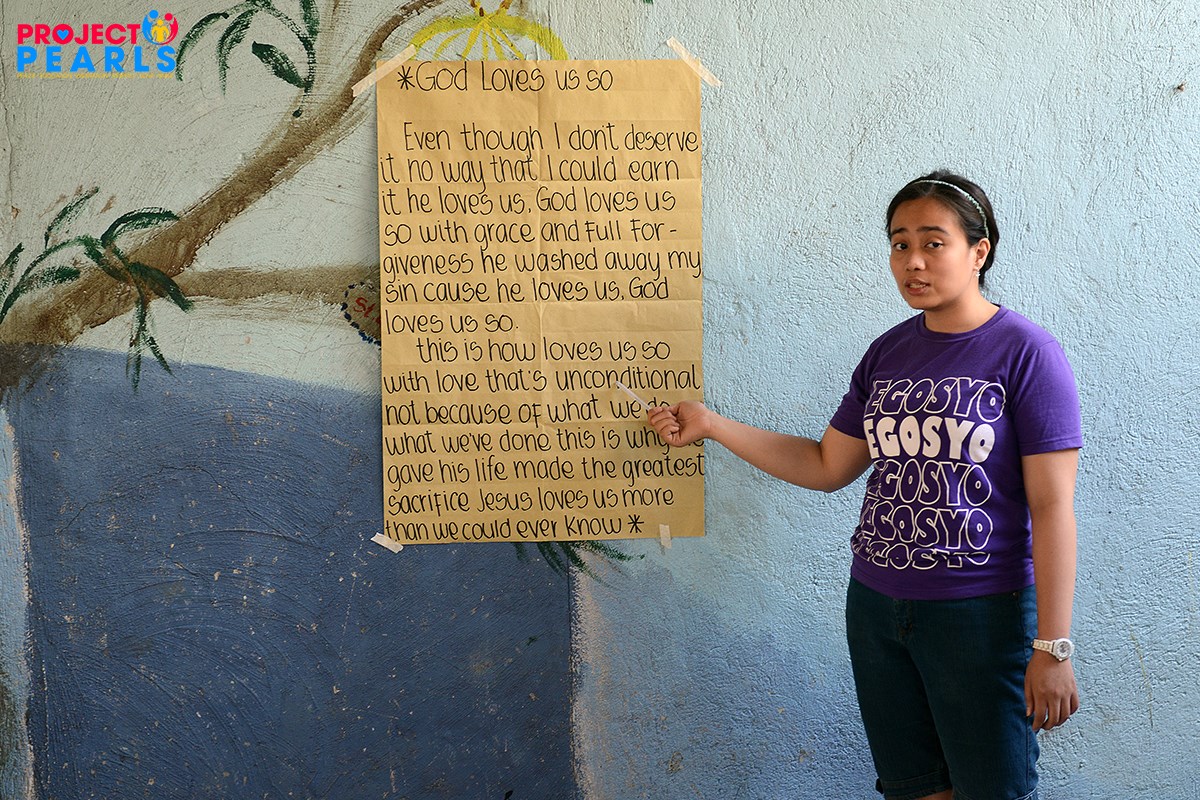 PROJECT
PEARLS
*God Loves us so
Even though I don't deserve
it no way that I could earn
it he loves us, God loves us
so with grace and full for-
giveness he washed away my
sin cause he loves us, God
loves us so.
this is how loves us so
with love that's unconditional
not because of what we do
what we've done this is why
gave his life made the greatest
sacrifice Jesus loves us more
than we could ever know *
EGOSYO
EGOSYO
EGOSYO
EGOSYO
EGOSYO